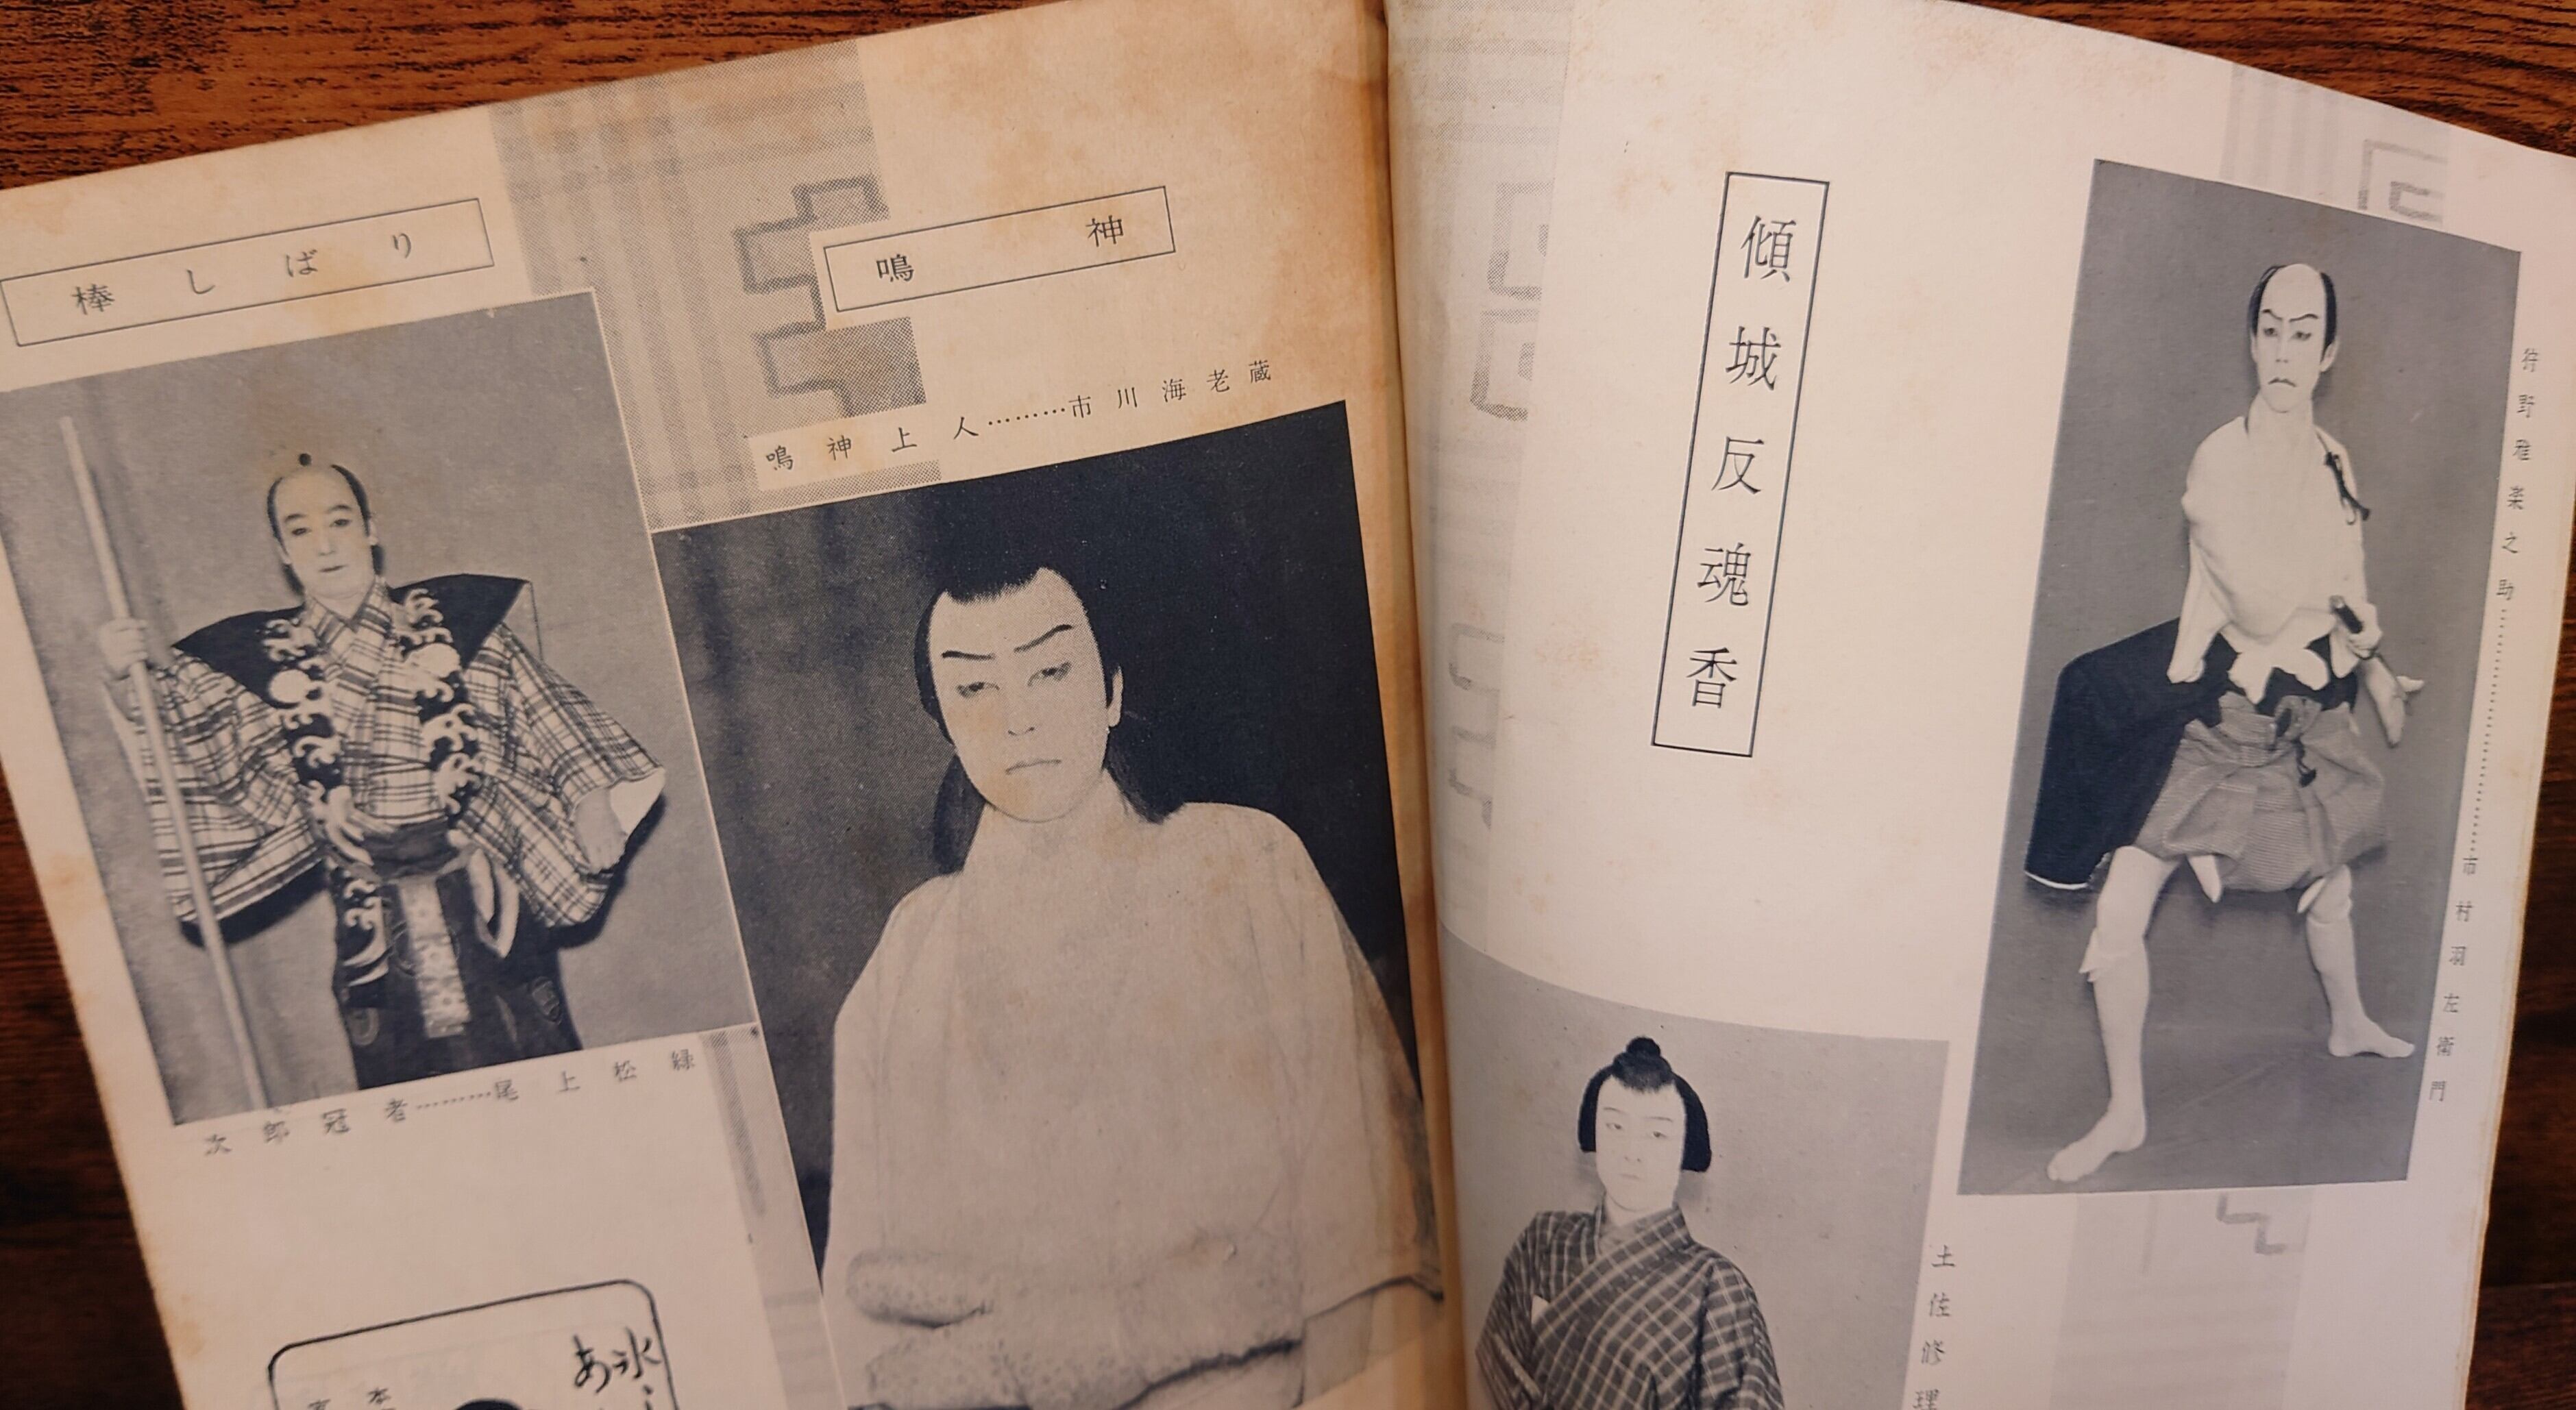 棒しばり
次郎冠者………尾上松緑
鳴神
鳴神上人………市川海老蔵
氷
あ
本
傾城反魂香
狩野雅楽之助………市村羽左衛門
土佐修理